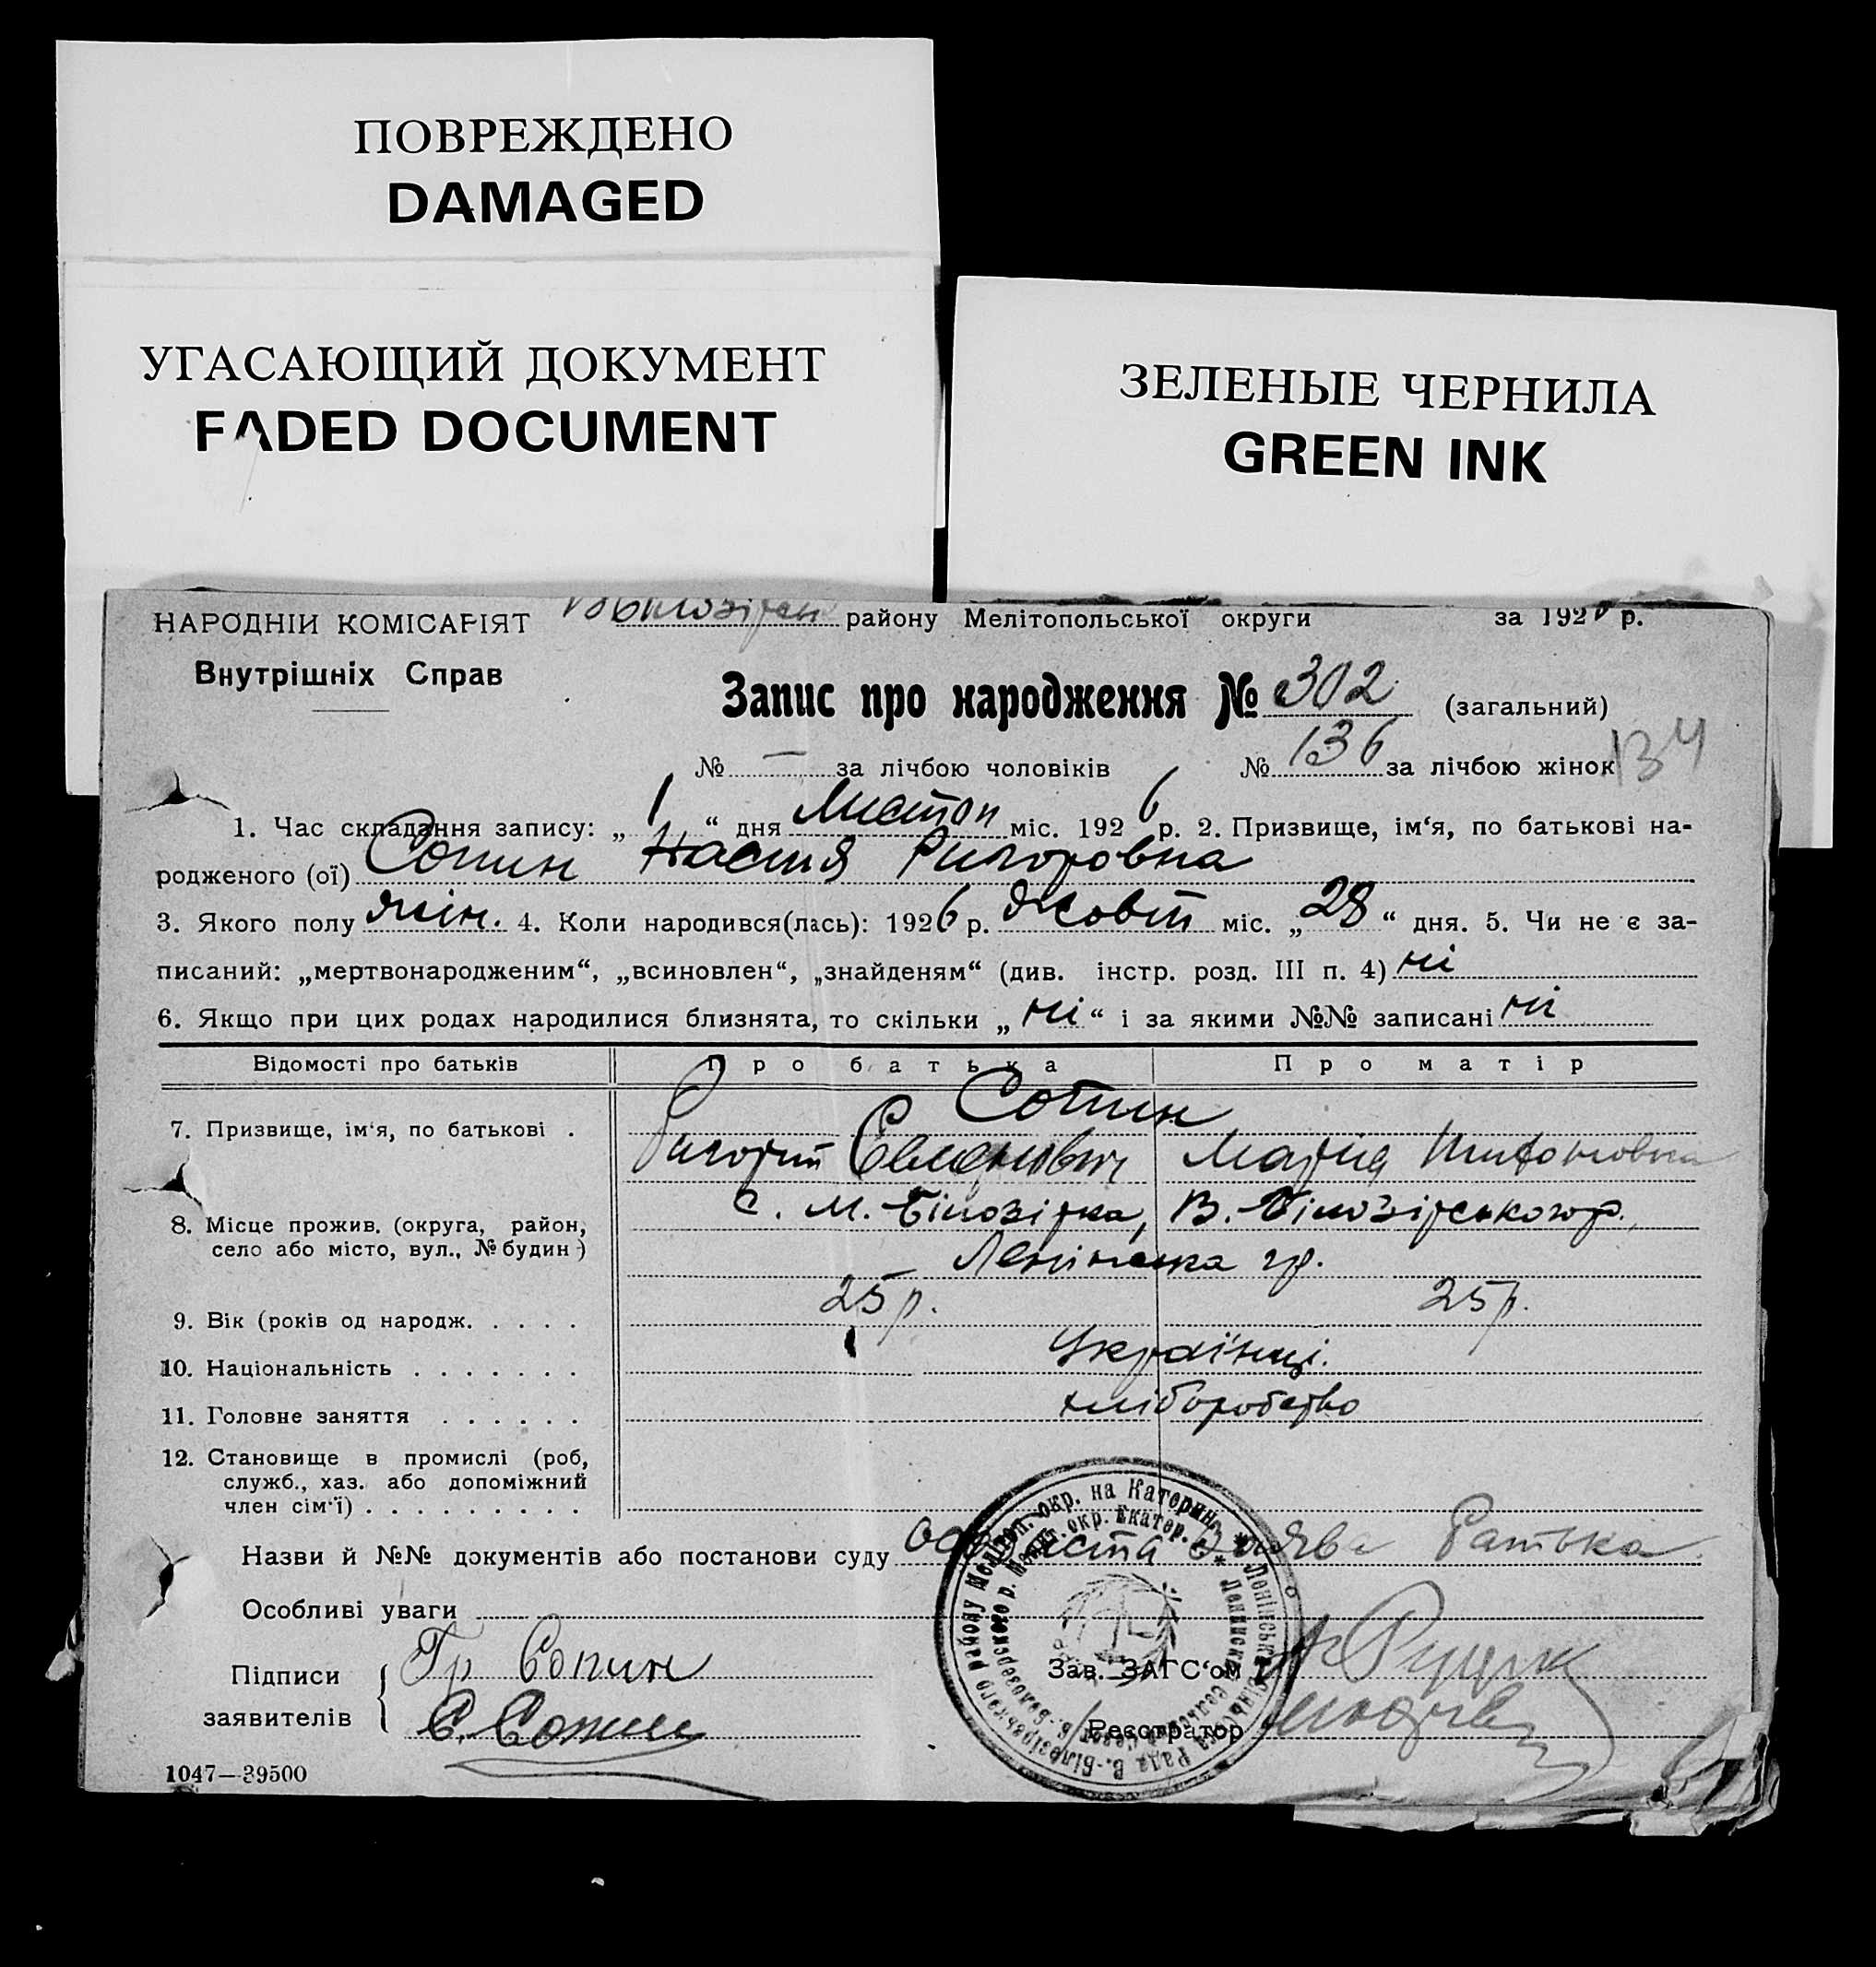 ПОВРЕЖДЕНО
DAMAGED
УГАСАЮЩИЙ ДОКУМЕНТ
FADED DOCUMENT
ЗЕЛЕНЫЕ ЧЕРНИЛА
GREEN INK
НАРОДНІЙ КОМІСАРІЯТ
Внутрішніх Справ
району Мелітопольської округи за 192 р.
Запис про народження № 302 (загальний)
№ — за лічбою чоловіків № 136 за лічбою жінок 134
1. Час складання запису: „ 1 “ дня Листоп міс. 192 6 р. 2. Призвище, ім‘я, по батькові на-
родженого (ої) Сопин Настя Григоровна
3. Якого полу жін. 4. Коли народився(лась): 1926 р. Жовт міс. „ 28 “ дня. 5. Чи не є за-
писаний: „мертвонародженим“, „всиновлен“, „знайденям“ (див. інстр. розд. III п. 4) ні
6. Якщо при цих родах народилися близнята, то скільки „ ні “ і за якими №№ записані ні
Відомості про батьків Про батька Про матір
7. Призвище, ім‘я, по батькові . Сопин
Григорий Марія
8. Місце прожив. (округа, район, село або місто, вул., № будин.) с. М. Білозірка, В. Білозірського р.,
Ленінська гр.
9. Вік (років од народж. . . . . 25 р. 25 р.
10. Національність . . . . . . . Українці.
11. Головне заняття . . . . . . хліборобство
12. Становище в промислі (роб,
служб., хаз. або допоміжний
член сім‘ї) . . . . . . . . .
Назви й №№ документів або постанови суду особиста заява батька
Особливі уваги
Підписи
заявителів
Гр Сопин
С. Сопин
Зав. ЗАГС‘ом
Реєстратор
1047—39500